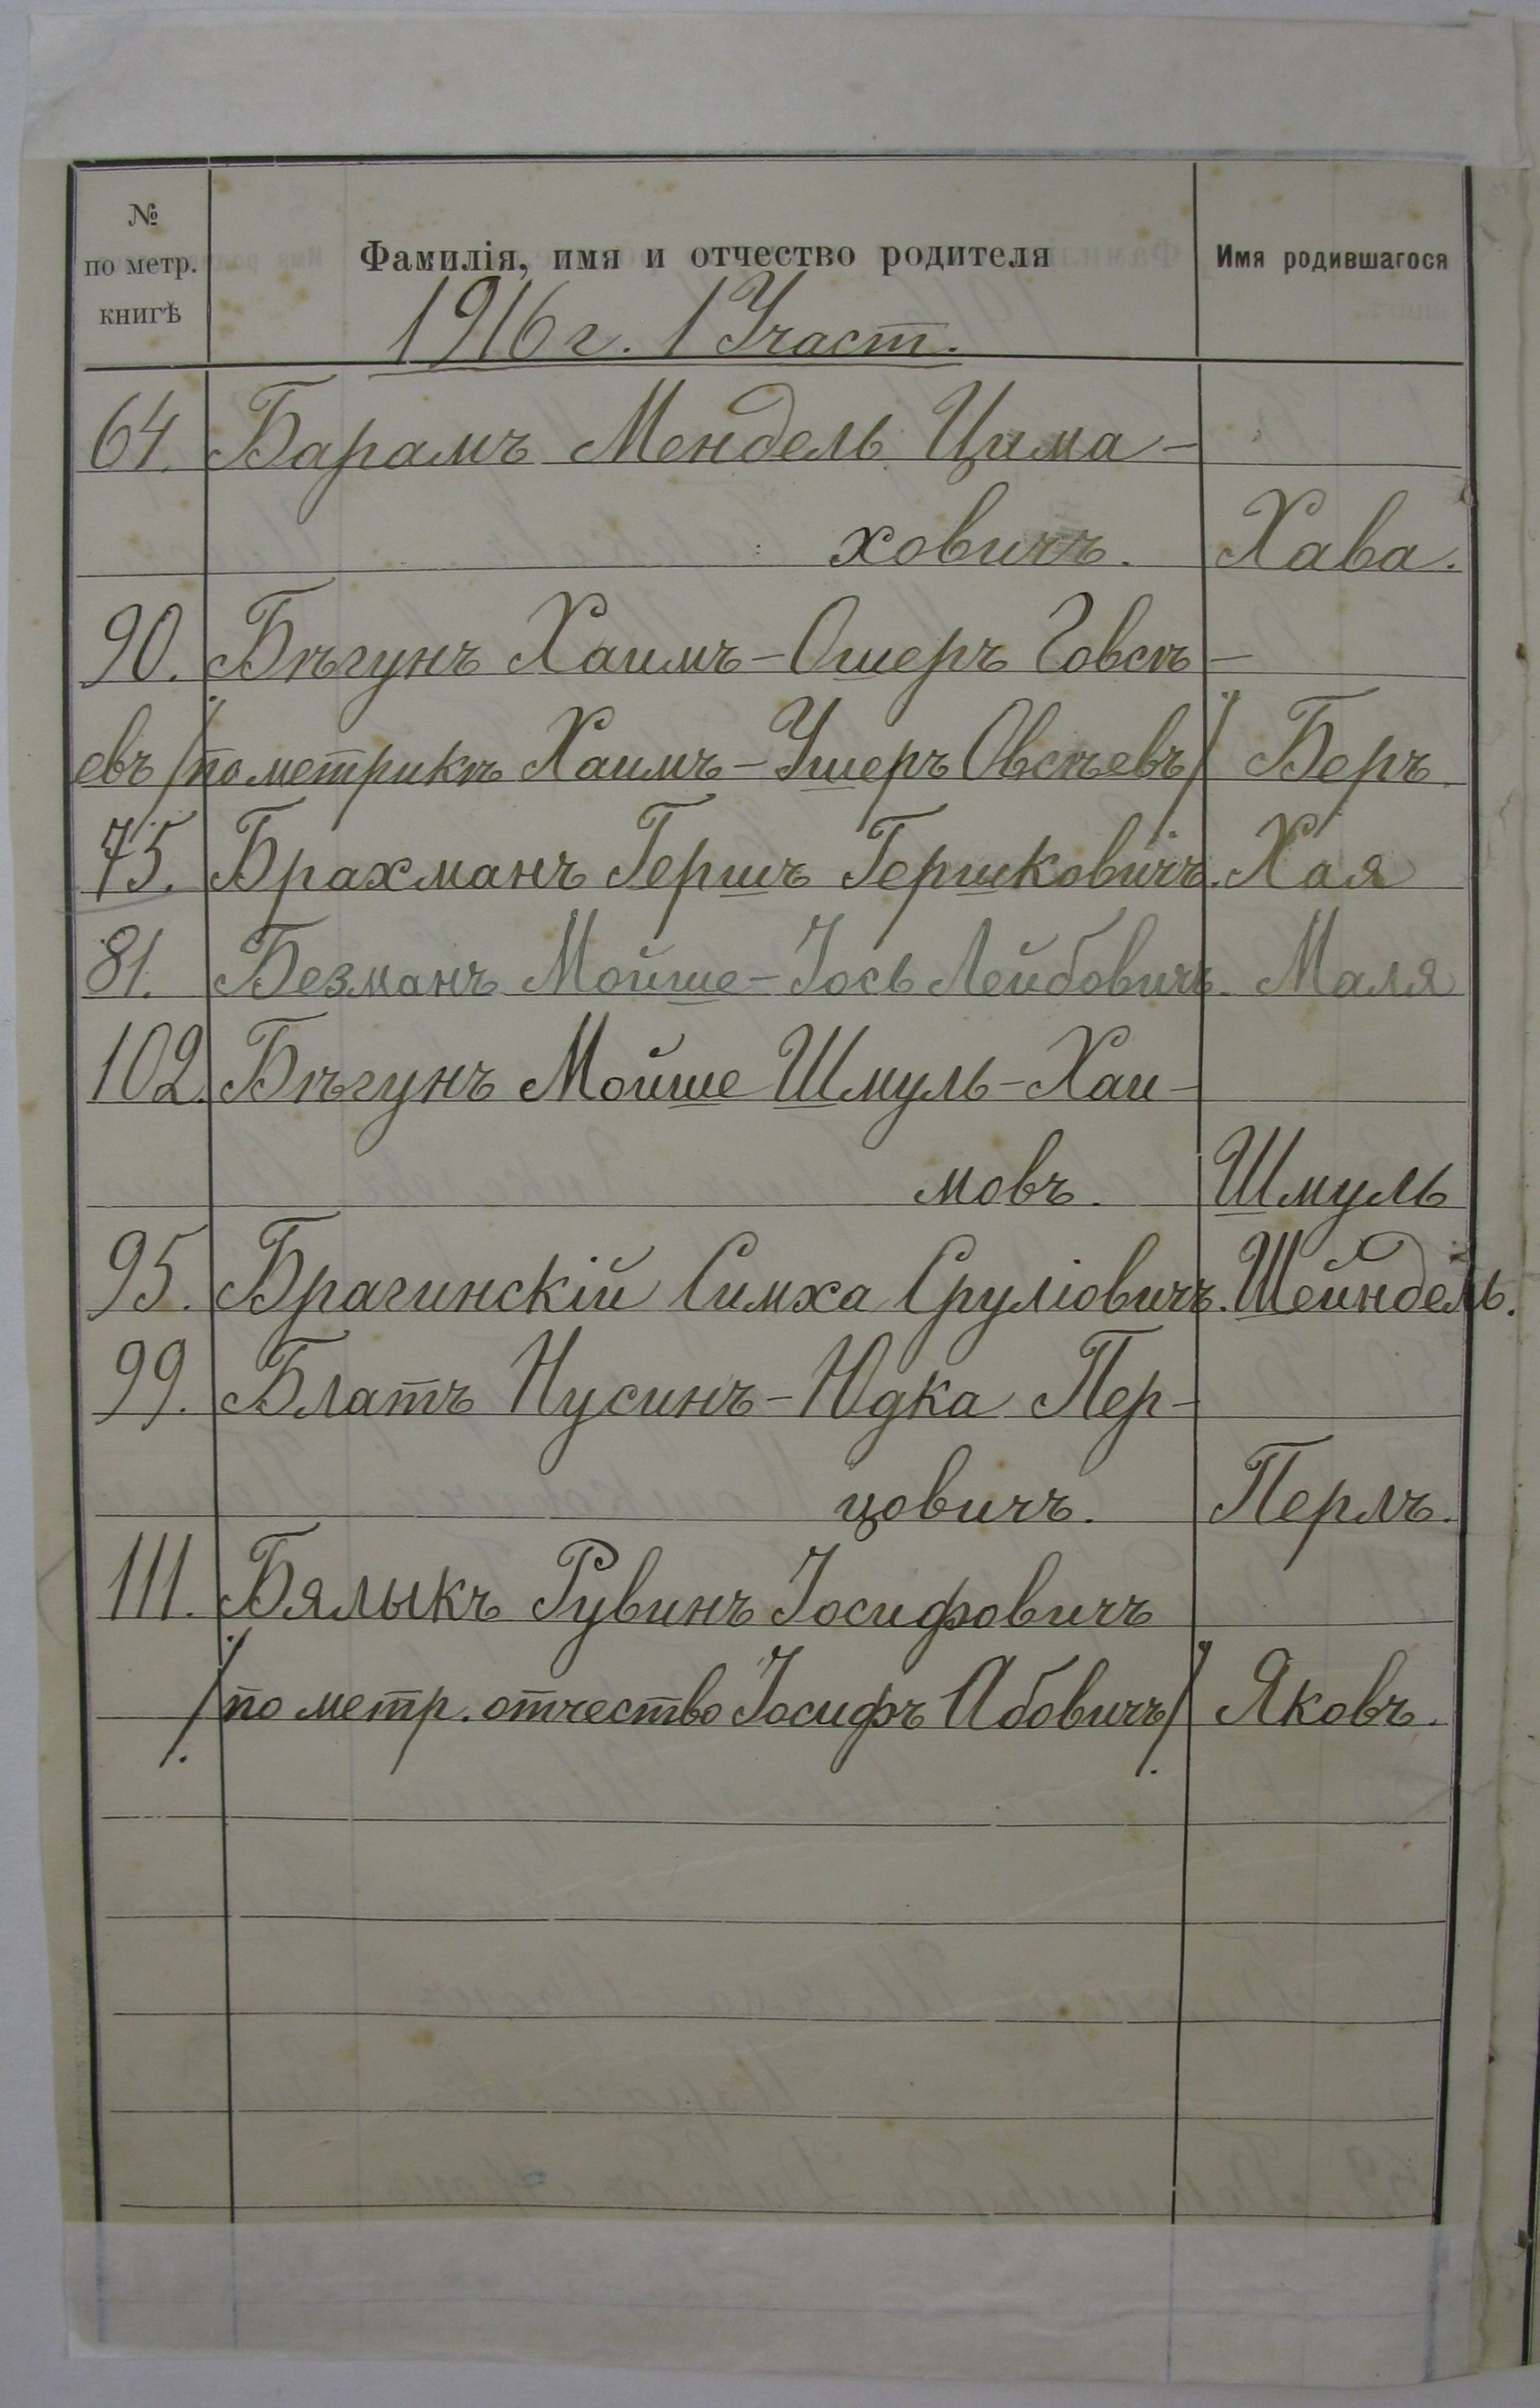 № по метр. книгѣ Фамилія, имя и отчество родителя Имя родившагося
1916 г. 1 Участ.
64. Барамъ Мендель Цима-
ховичъ. Хава.
90. Бѣгунъ Хаимъ-Ошеръ Говсѣ-
евъ /по метрикѣ Хаимъ-Ушеръ Овсѣевъ/ Беръ
75. Брахманъ Гершъ Гершковичъ. Хая
81. Безманъ Мойше-Іось Лейбовичъ. Маля
102. Бѣгунъ Мойше Шмуль-Хаи-
мовъ. Шмуль
95. Брагинскій Симха Сруліовичъ. Шейндель.
99. Блатъ Нусинъ-Юдка Пер-
цовичъ. Перлъ.
111. Бялыкъ Рувинъ Іосифовичъ
/по метр. отчество Іосифъ Абовичъ/ Яковъ.